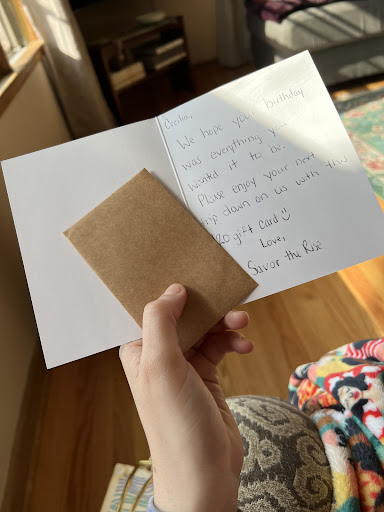 Cecilia,
We hope your birthday
was everything you
wanted it to be.
Please enjoy your next
trip down on us with this
$20 gift card :)
Love,
Savor the Rise